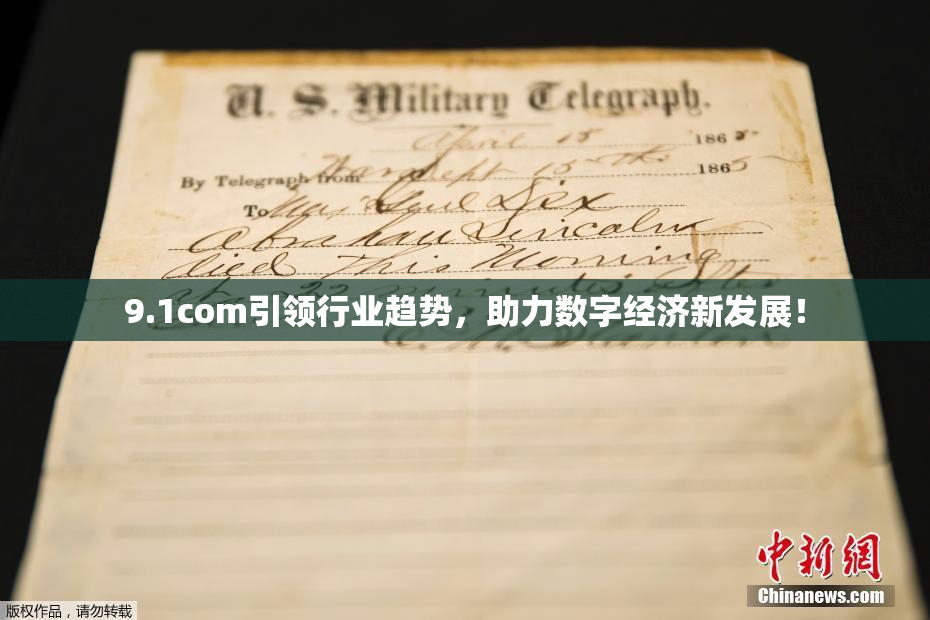 U. S. Military Telegraph.
April 15 1865
By Telegraph from War Dept 15th 1865
To Maj Genl Dix
Abraham Lincoln
died This Morning
at 22 minutes after
9.1com引领行业趋势，助力数字经济新发展！
E. M. Stanton
中新網
Chinanews.com
版权作品，请勿转载